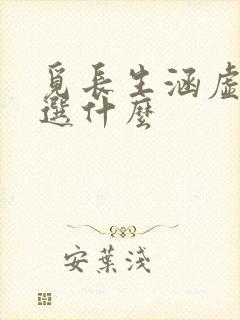 覓長生涵虛
選什麼
安葉淺